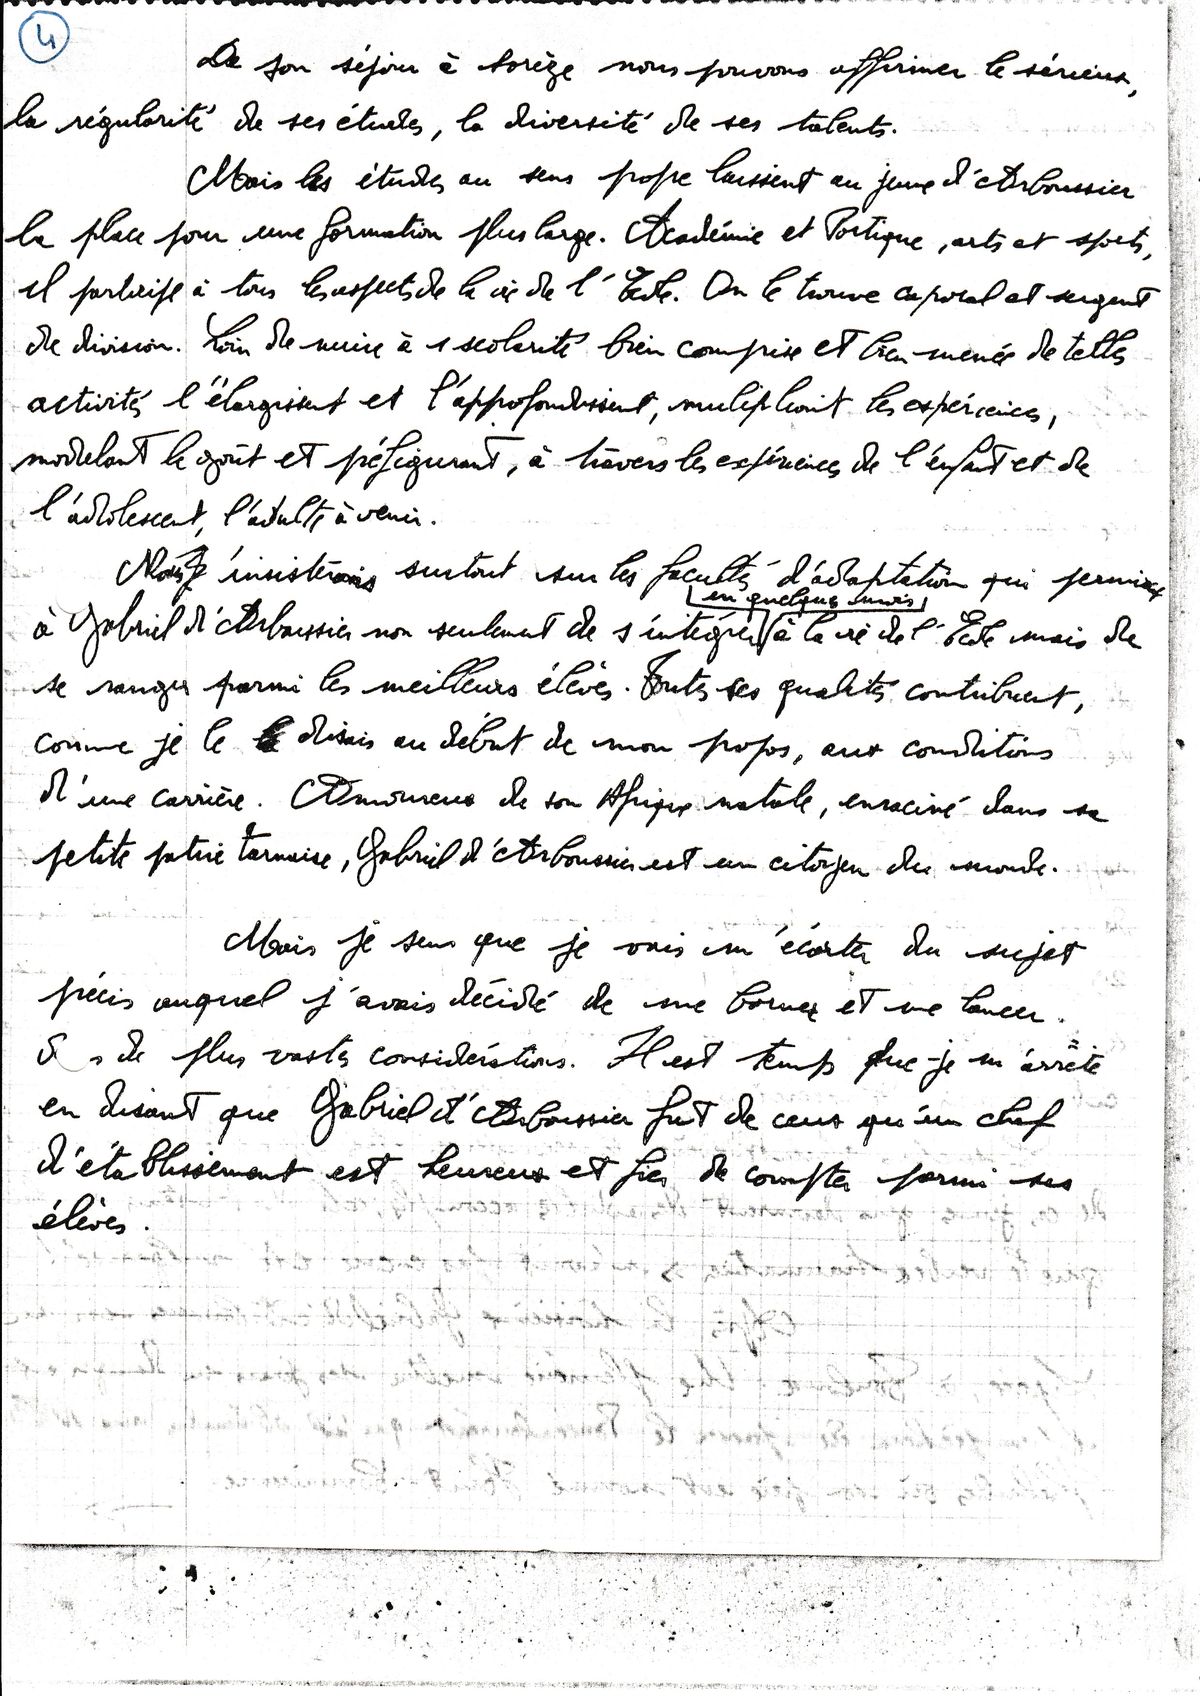 4
De son séjour à Sorèze nous pouvons affirmer le sérieux,
la régularité de ses études, la diversité de ses talents.
Mais les études au sens propre laissent au jeune d'Arboussier
la place pour une formation plus large. Académie et Portique, arts et sports,
il participe à tous les aspects de la vie de l'École. On le trouve caporal et sergent
de division. Loin de nuire à 1 scolarité bien comprise et bien menée de telles
activités l'élargissent et l'approfondissent, multipliant les expériences,
modelant le goût et préfigurant, à travers les expériences de l'enfant et de
l'adolescent, l'adulte à venir.
J'insisterais surtout sur les facultés d'adaptation qui permirent
en quelques mois
à Gabriel d'Arboussier non seulement de s'intégrer à la vie de l'École mais de
se ranger parmi les meilleurs élèves. Toutes ses qualités contribuent,
comme je le disais au début de mon propos, aux conditions
d'une carrière. Amoureux de son Afrique natale, enraciné dans sa
petite patrie tarnaise, Gabriel d'Arboussier est un citoyen du monde.
Mais je sens que je vais m'écarter du sujet
précis auquel j'avais décidé de me borner et me lancer
de plus vastes considérations. Il est temps que je m'arrête
en disant que Gabriel d'Arboussier fut de ceux qu'un chef
d'établissement est heureux et fier de compter parmi ses
élèves.